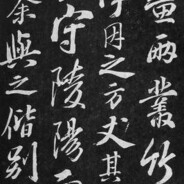 畫兩叢竹
因之方丈其
守陵陽而
余與之偕別